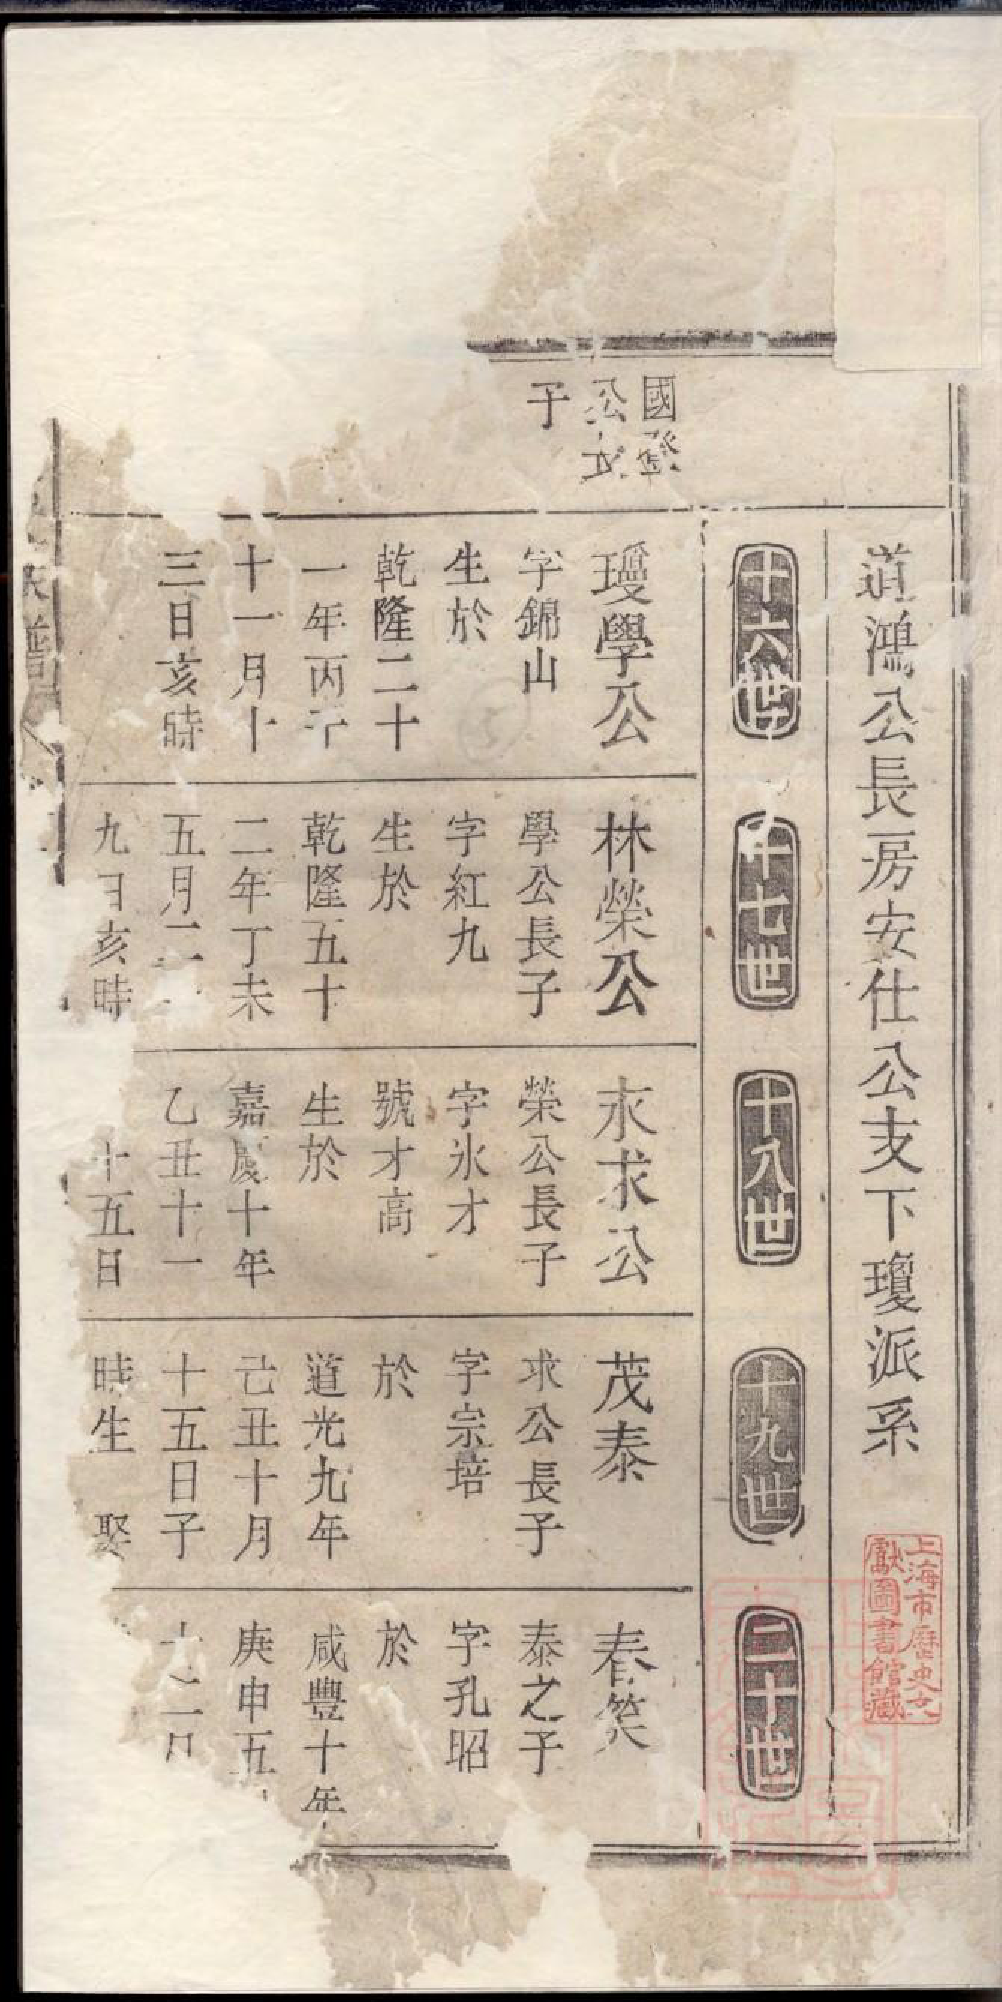 道鴻公長房安仕公支下瓊派系
上海市歷史文
獻圖書館藏
十六世
十七世
十八世
十九世
二十世
國
公
子
瓊學公
字錦山
生於
乾隆二十
一年丙子
十一月十
三日亥時
林榮公
學公長子
字紅九
生於
乾隆五十
二年丁未
五月二
九日亥時
永求公
榮公長子
字氷才
號才高
生於
嘉慶十年
乙丑十一
十五日
茂泰
求公長子
字宗培
於
道光九年
己丑十月
十五日子
時生 娶
春笑
泰之子
字孔昭
於
咸豐十年
庚申五